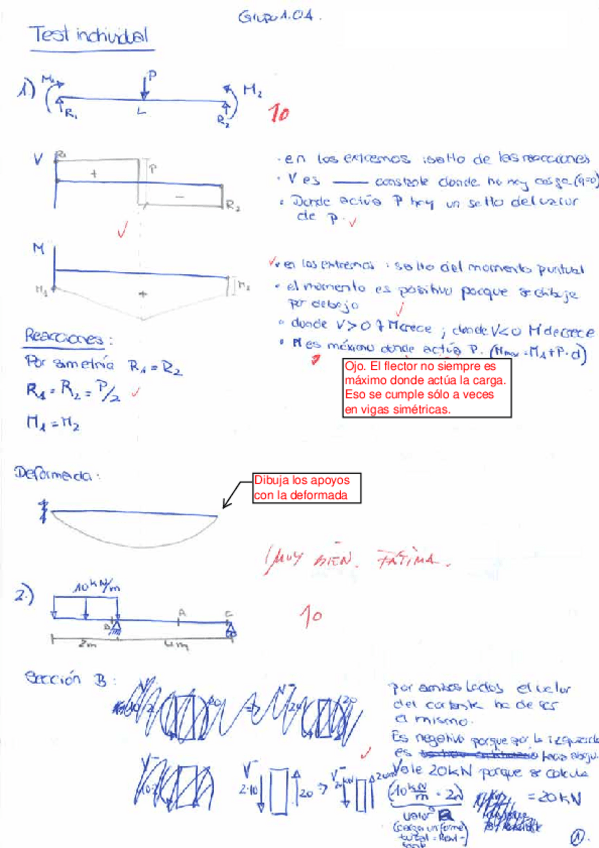 Grupo 1.04.
Test individual
1)
M₁
P
M₂
R₁
L
R₂
10
V
R₁
P
+
-
R₂
· en los extremos: salto de las reacciones
· V es constante donde no hay carga (q=0)
· Donde actúa P hay un salto del valor
de P.
M
M₁
+
M₂
· en los extremos: salto del momento puntual
· el momento es positivo porque se dibuja
por debajo
· donde V>0 M crece; donde V<0 M decrece
· M es máximo donde actúa P. (Mmax=M₁+P·d)
Ojo. El flector no siempre es
máximo donde actúa la carga.
Eso se cumple sólo a veces
en vigas simétricas.
Reacciones:
Por simetría R₁=R₂
R₁=R₂=P/2
M₁=M₂
Deformada:
Dibuja los apoyos
con la deformada
¡MUY BIEN, FÁTIMA.
2)
10kN/m
B
A
C
2m
4m
10
Sección B:
V⁻
2·10
20
V⁻
por ambos lados el valor
del cortante ha de ser
el mismo.
Es negativo porque por la izquierda
es hacia abajo.
Vale 20kN porque se calcula
(10kN/m · 2m) =20kN
valor
(carga uniforme)
1